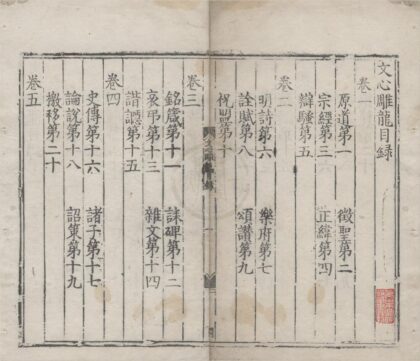 文心雕龍目錄
卷一
原道第一 徵聖第二
宗經第三 正緯第四
辯騷第五
卷二
明詩第六 樂府第七
詮賦第八 頌讚第九
祝盟第十
卷三
銘箴第十一 誄碑第十二
哀弔第十三 雜文第十四
諧讔第十五
卷四
史傳第十六 諸子第十七
論說第十八 詔策第十九
檄移第二十
卷五